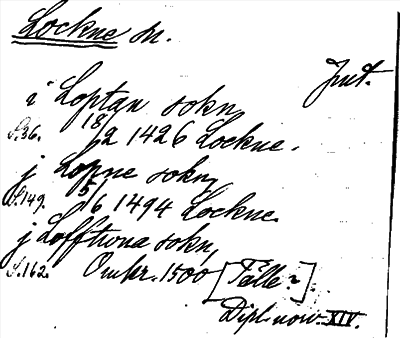 Lockne sn.
Jmt.
i Loptan sokn
S.36. 18/2 1426 Lockne.
j Lopne sokn,
S.149. 5/6 1494 Lockne.
j Lofftrona sokn,
S.162. Omkr. 1500 [Fälle?]
Dipl. norv. XIV.